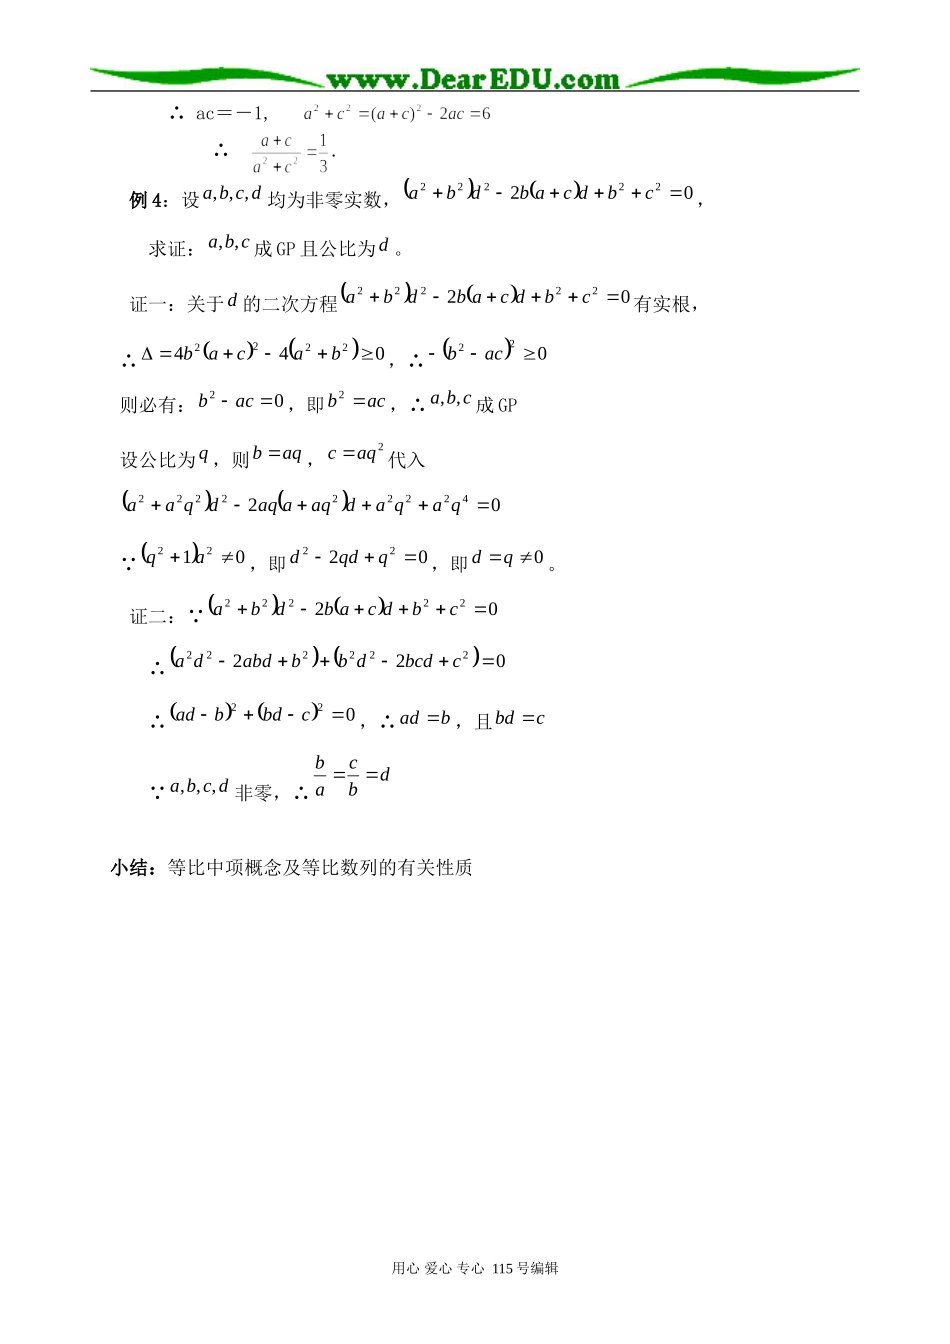 www.DearEDU.com
∴ ac＝－1， a²+c²=(a+c)²-2ac=6
∴ (a+c)/(a²+c²)=1/3.
例 4：设 a,b,c,d 均为非零实数，(a²+b²)d²-2b(a+c)d+b²+c²=0，
求证：a,b,c 成 GP 且公比为 d 。
证一：关于 d 的二次方程 (a²+b²)d²-2b(a+c)d+b²+c²=0 有实根，
∴ Δ=4b²(a+c)²-4(a²+b²)≥0，∴ -(b²-ac)²≥0
则必有：b²-ac=0，即 b²=ac，∴ a,b,c 成 GP
设公比为 q，则 b=aq，c=aq² 代入
(a²+a²q²)d²-2aq(a+aq²)d+a²q²+a²q⁴=0
∵ (q²+1)a²≠0，即 d²-2qd+q²=0，即 d=q≠0。
证二：∵ (a²+b²)d²-2b(a+c)d+b²+c²=0
∴ (a²d²-2abd+b²)+(b²d²-2bcd+c²)=0
∴ (ad-b)²+(bd-c)²=0，∴ ad=b，且 bd=c
∵ a,b,c,d 非零，∴ b/a=c/b=d
小结：等比中项概念及等比数列的有关性质
用心 爱心 专心 115 号编辑